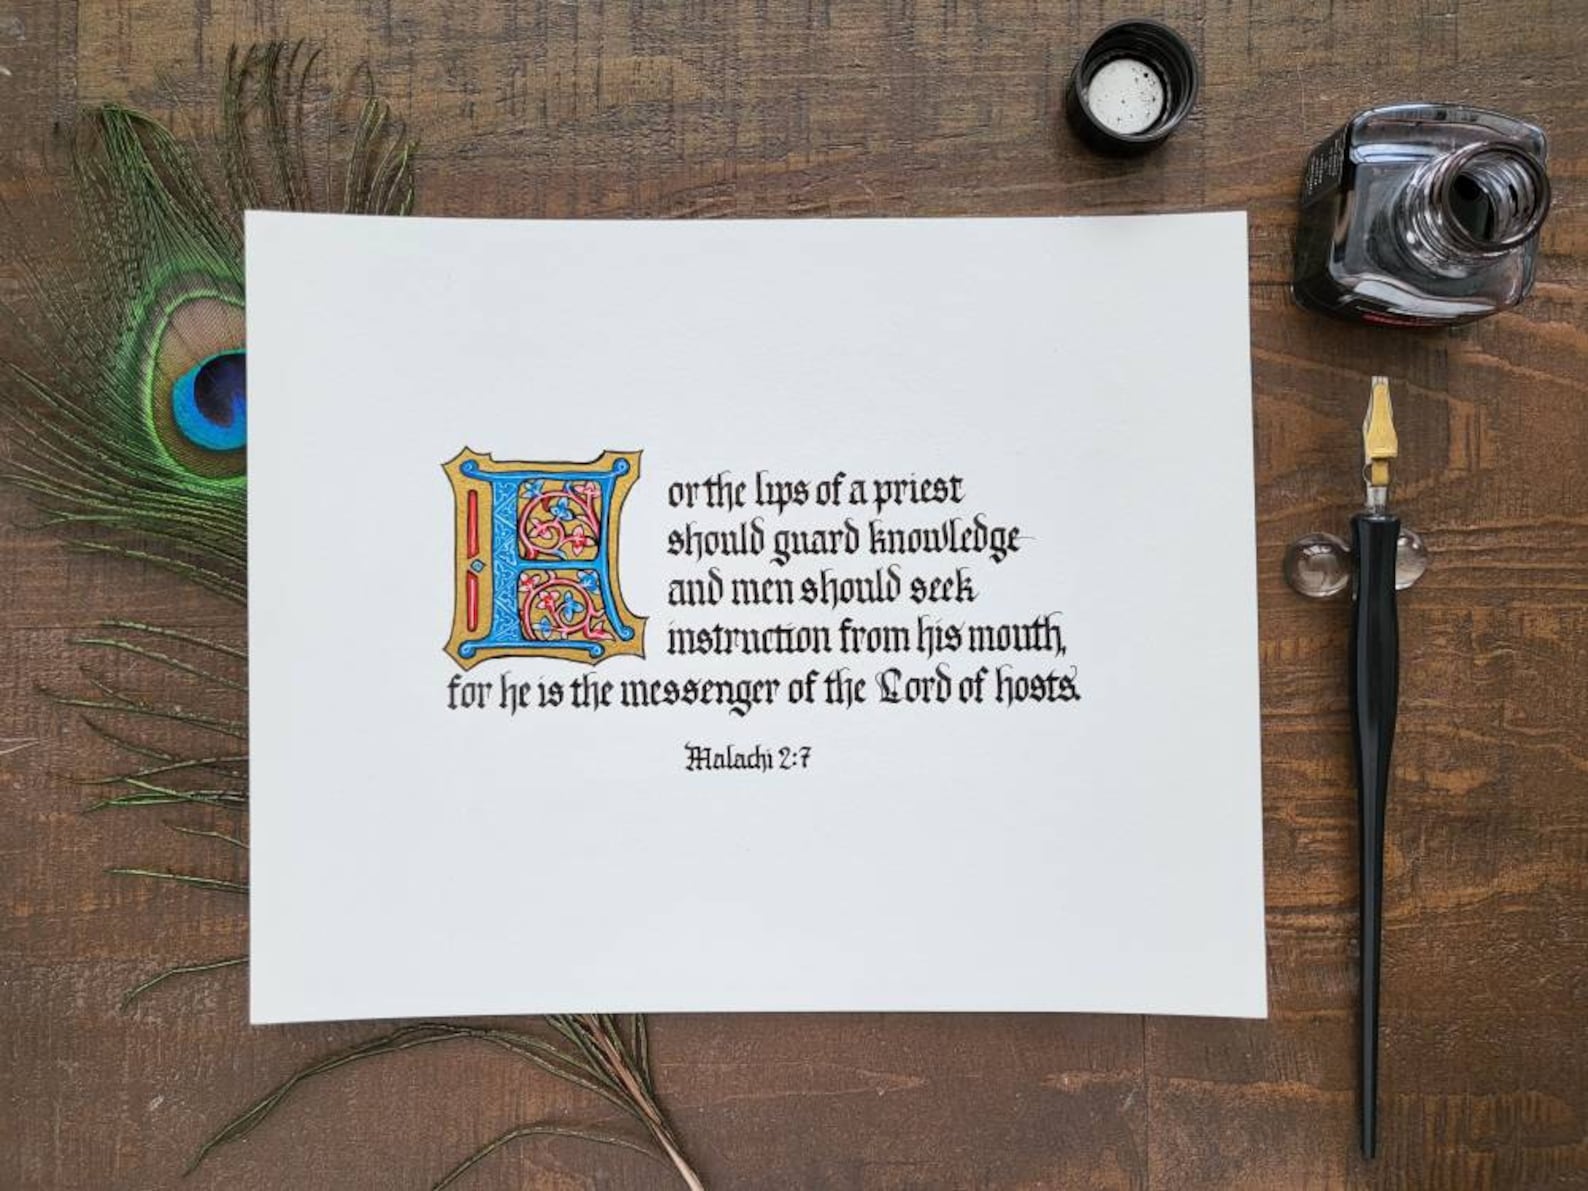 For the lips of a priest
should guard knowledge
and men should seek
instruction from his mouth,
for he is the messenger of the Lord of hosts.
Malachi 2:7